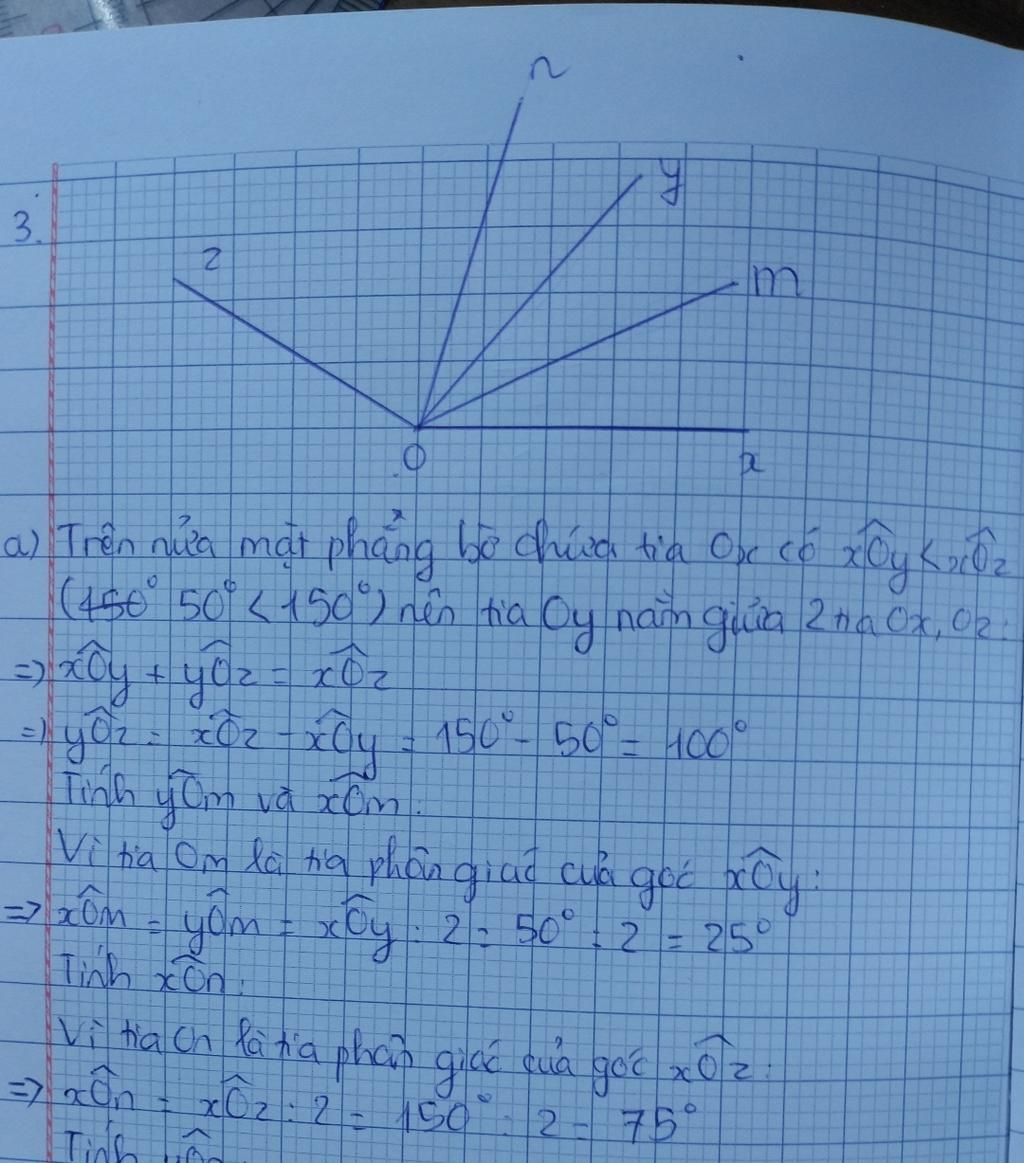 n
y
3.
z
m
O
x
a) Trên nửa mặt phẳng bờ chứa tia Ox có xÔy < xÔz
(150° 50° < 150°) nên tia Oy nằm giữa 2 tia Ox, Oz.
=> xÔy + yÔz = xÔz
=> yÔz = xÔz - xÔy = 150° - 50° = 100°
Tính yÔm và xÔm.
Vì tia Om là tia phân giác của góc xÔy:
=> xÔm = yÔm = xÔy : 2 = 50° : 2 = 25°
Tính xÔn.
Vì tia On là tia phân giác của góc xÔz:
=> xÔn = xÔz : 2 = 150° : 2 = 75°
Tính